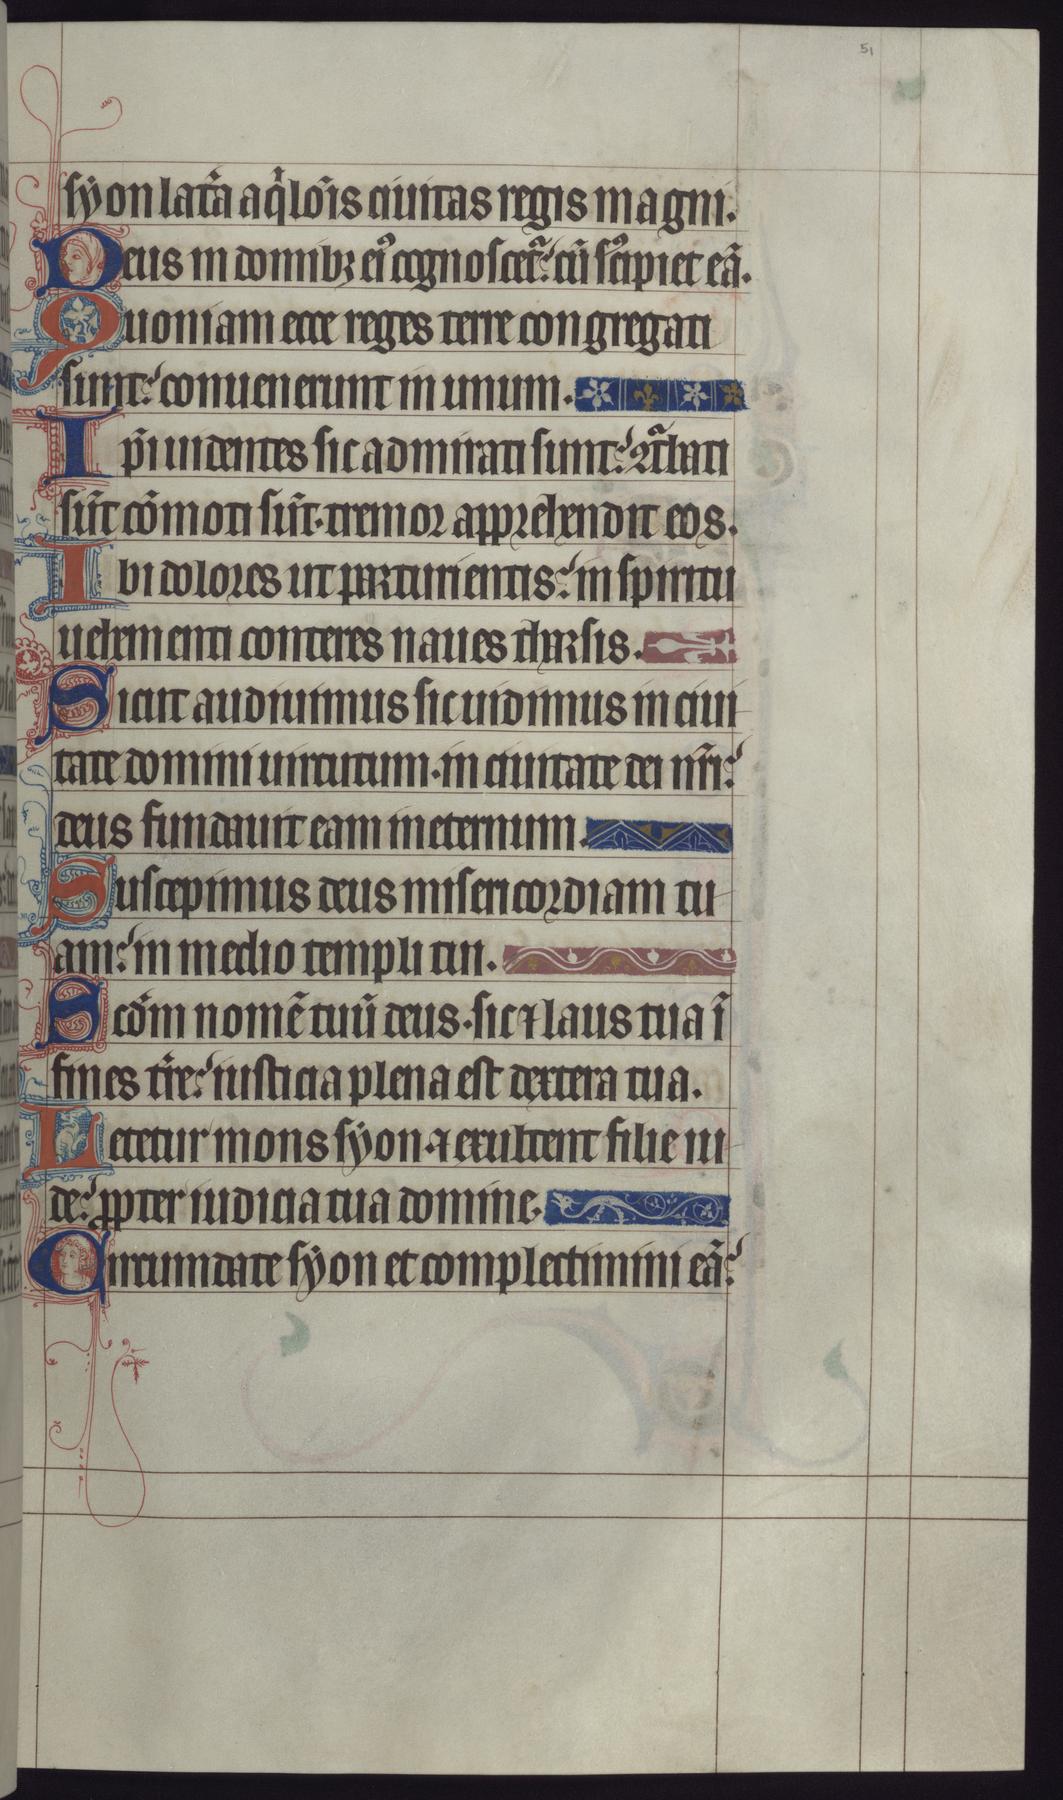 51
syon lat̃a aq̇lõis ciuitas regis magni.
Deus in domibꝫ eiꝰ cognoscet᷑: cũ sꝰcipiet eã.
Quoniam ecce reges terre congregati
sunt: conuenerunt in unum.
Ip̃i uidentes sic admirati sunt: ↄt᷑bati
sũt cõmoti sũt. tremor apprehendit eos.
Ibi dolores ut parturientis: in spiritu
uehementi conteres naues tharsis.
Sicut audiuimus sic uidimus in ciui
tate domini uirtutum. in ciuitate dei nr̃i:
deus fundauit eam in eternum.
Suscepimus deus misericordiam tu
am: in medio templi tui.
Scd̃m nomẽ tuũ deus. sic ⁊ laus tua ĩ
fines tr̃e: iusticia plena est dextera tua.
Letetur mons syon. ⁊ exultent filie iu
de: ꝓpter iudicia tua domine.
Circumdate syon et complectimini eã: